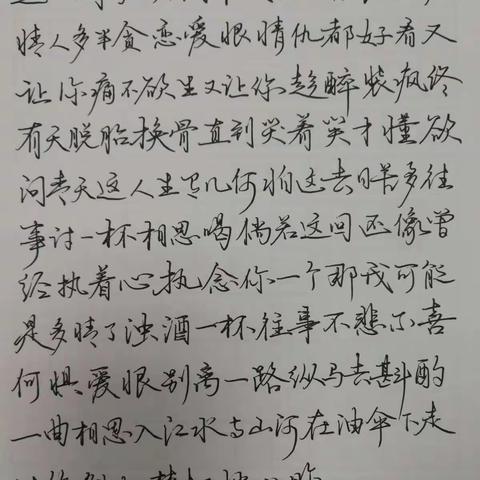 情人多半贪恋爱恨情仇都好看又
让你痛不欲生又让你趁醉装疯终
有天脱胎换骨直到哭着笑才懂欲
问青天这人生有几何怕这去日苦多往
事讨一杯相思喝倘若这回还像曾
经执着心执念你一个那我可能
是多情了浊酒一杯往事不悲不喜
何惧爱恨别离一路纵马去斟酌
一曲相思入江水与山河在油伞下走